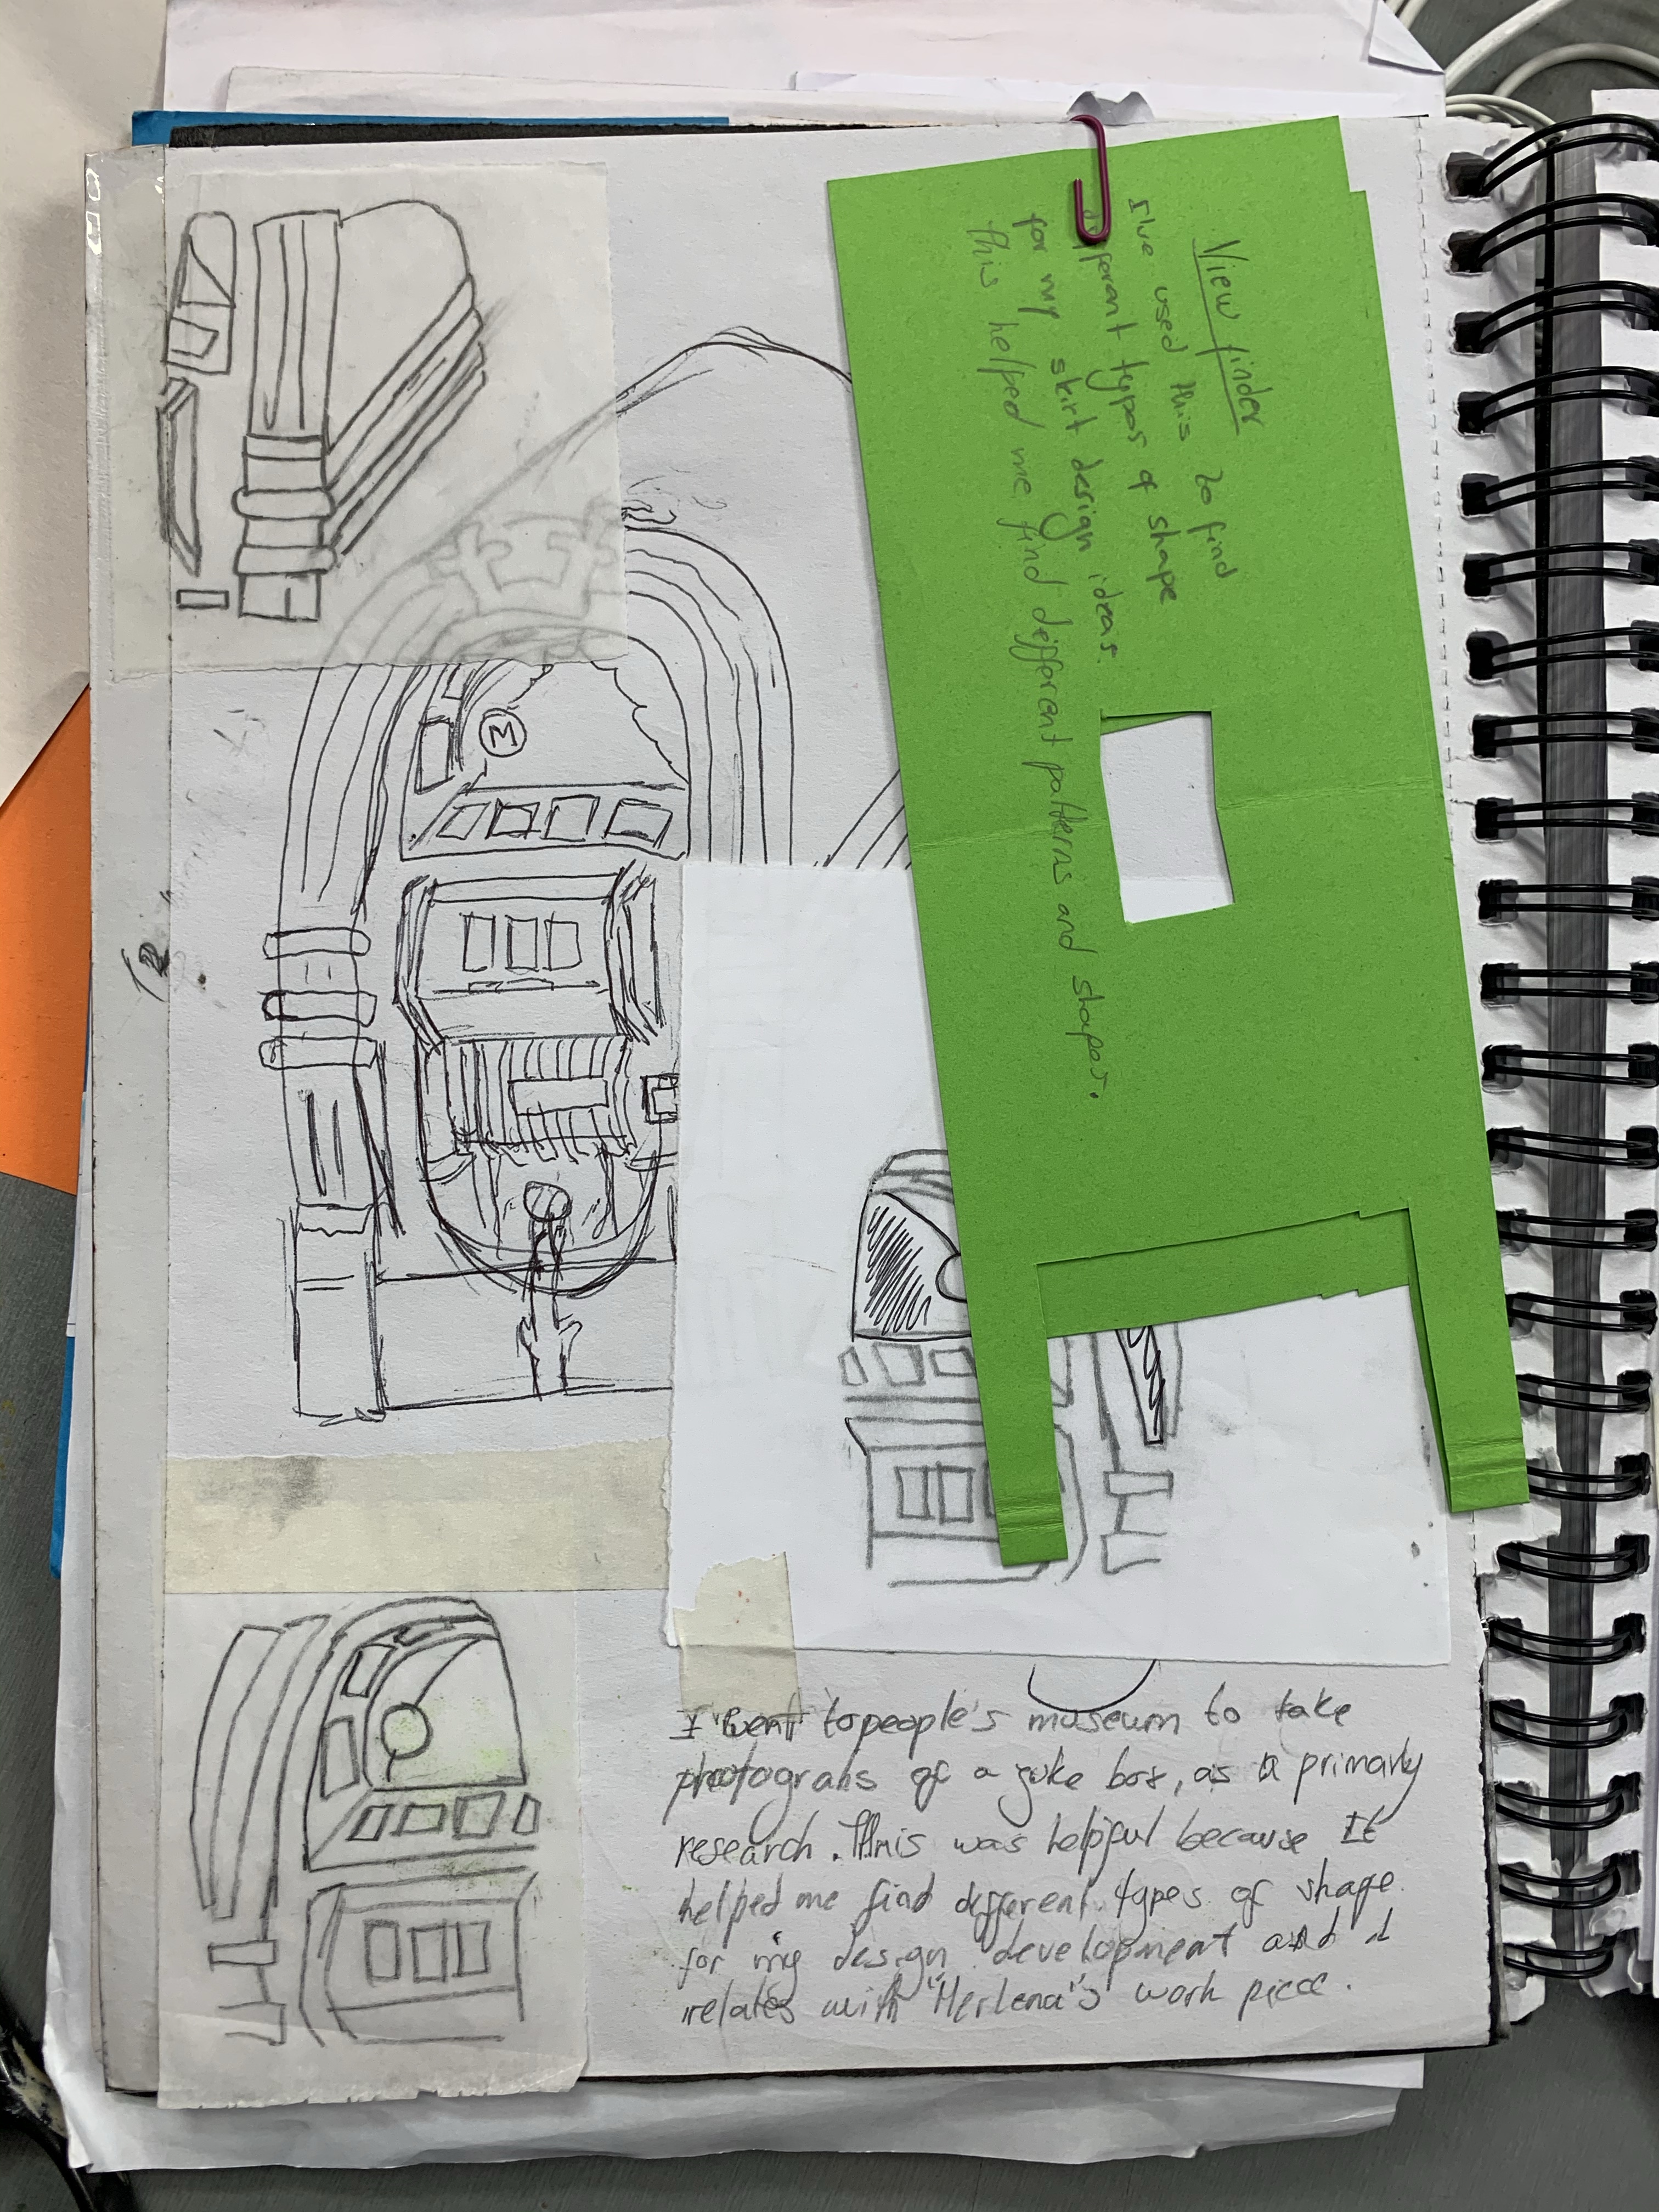 View finder
I've used this to find
different types of shape
for my skirt design ideas.
this helped me find different patterns and shapes.
M
I went to people's museum to take
photograhs of a juke box, as a primary
research. This was helpful because It
helped me find different types of shape
for my design development and it
relates with "Herlena's" work piece.